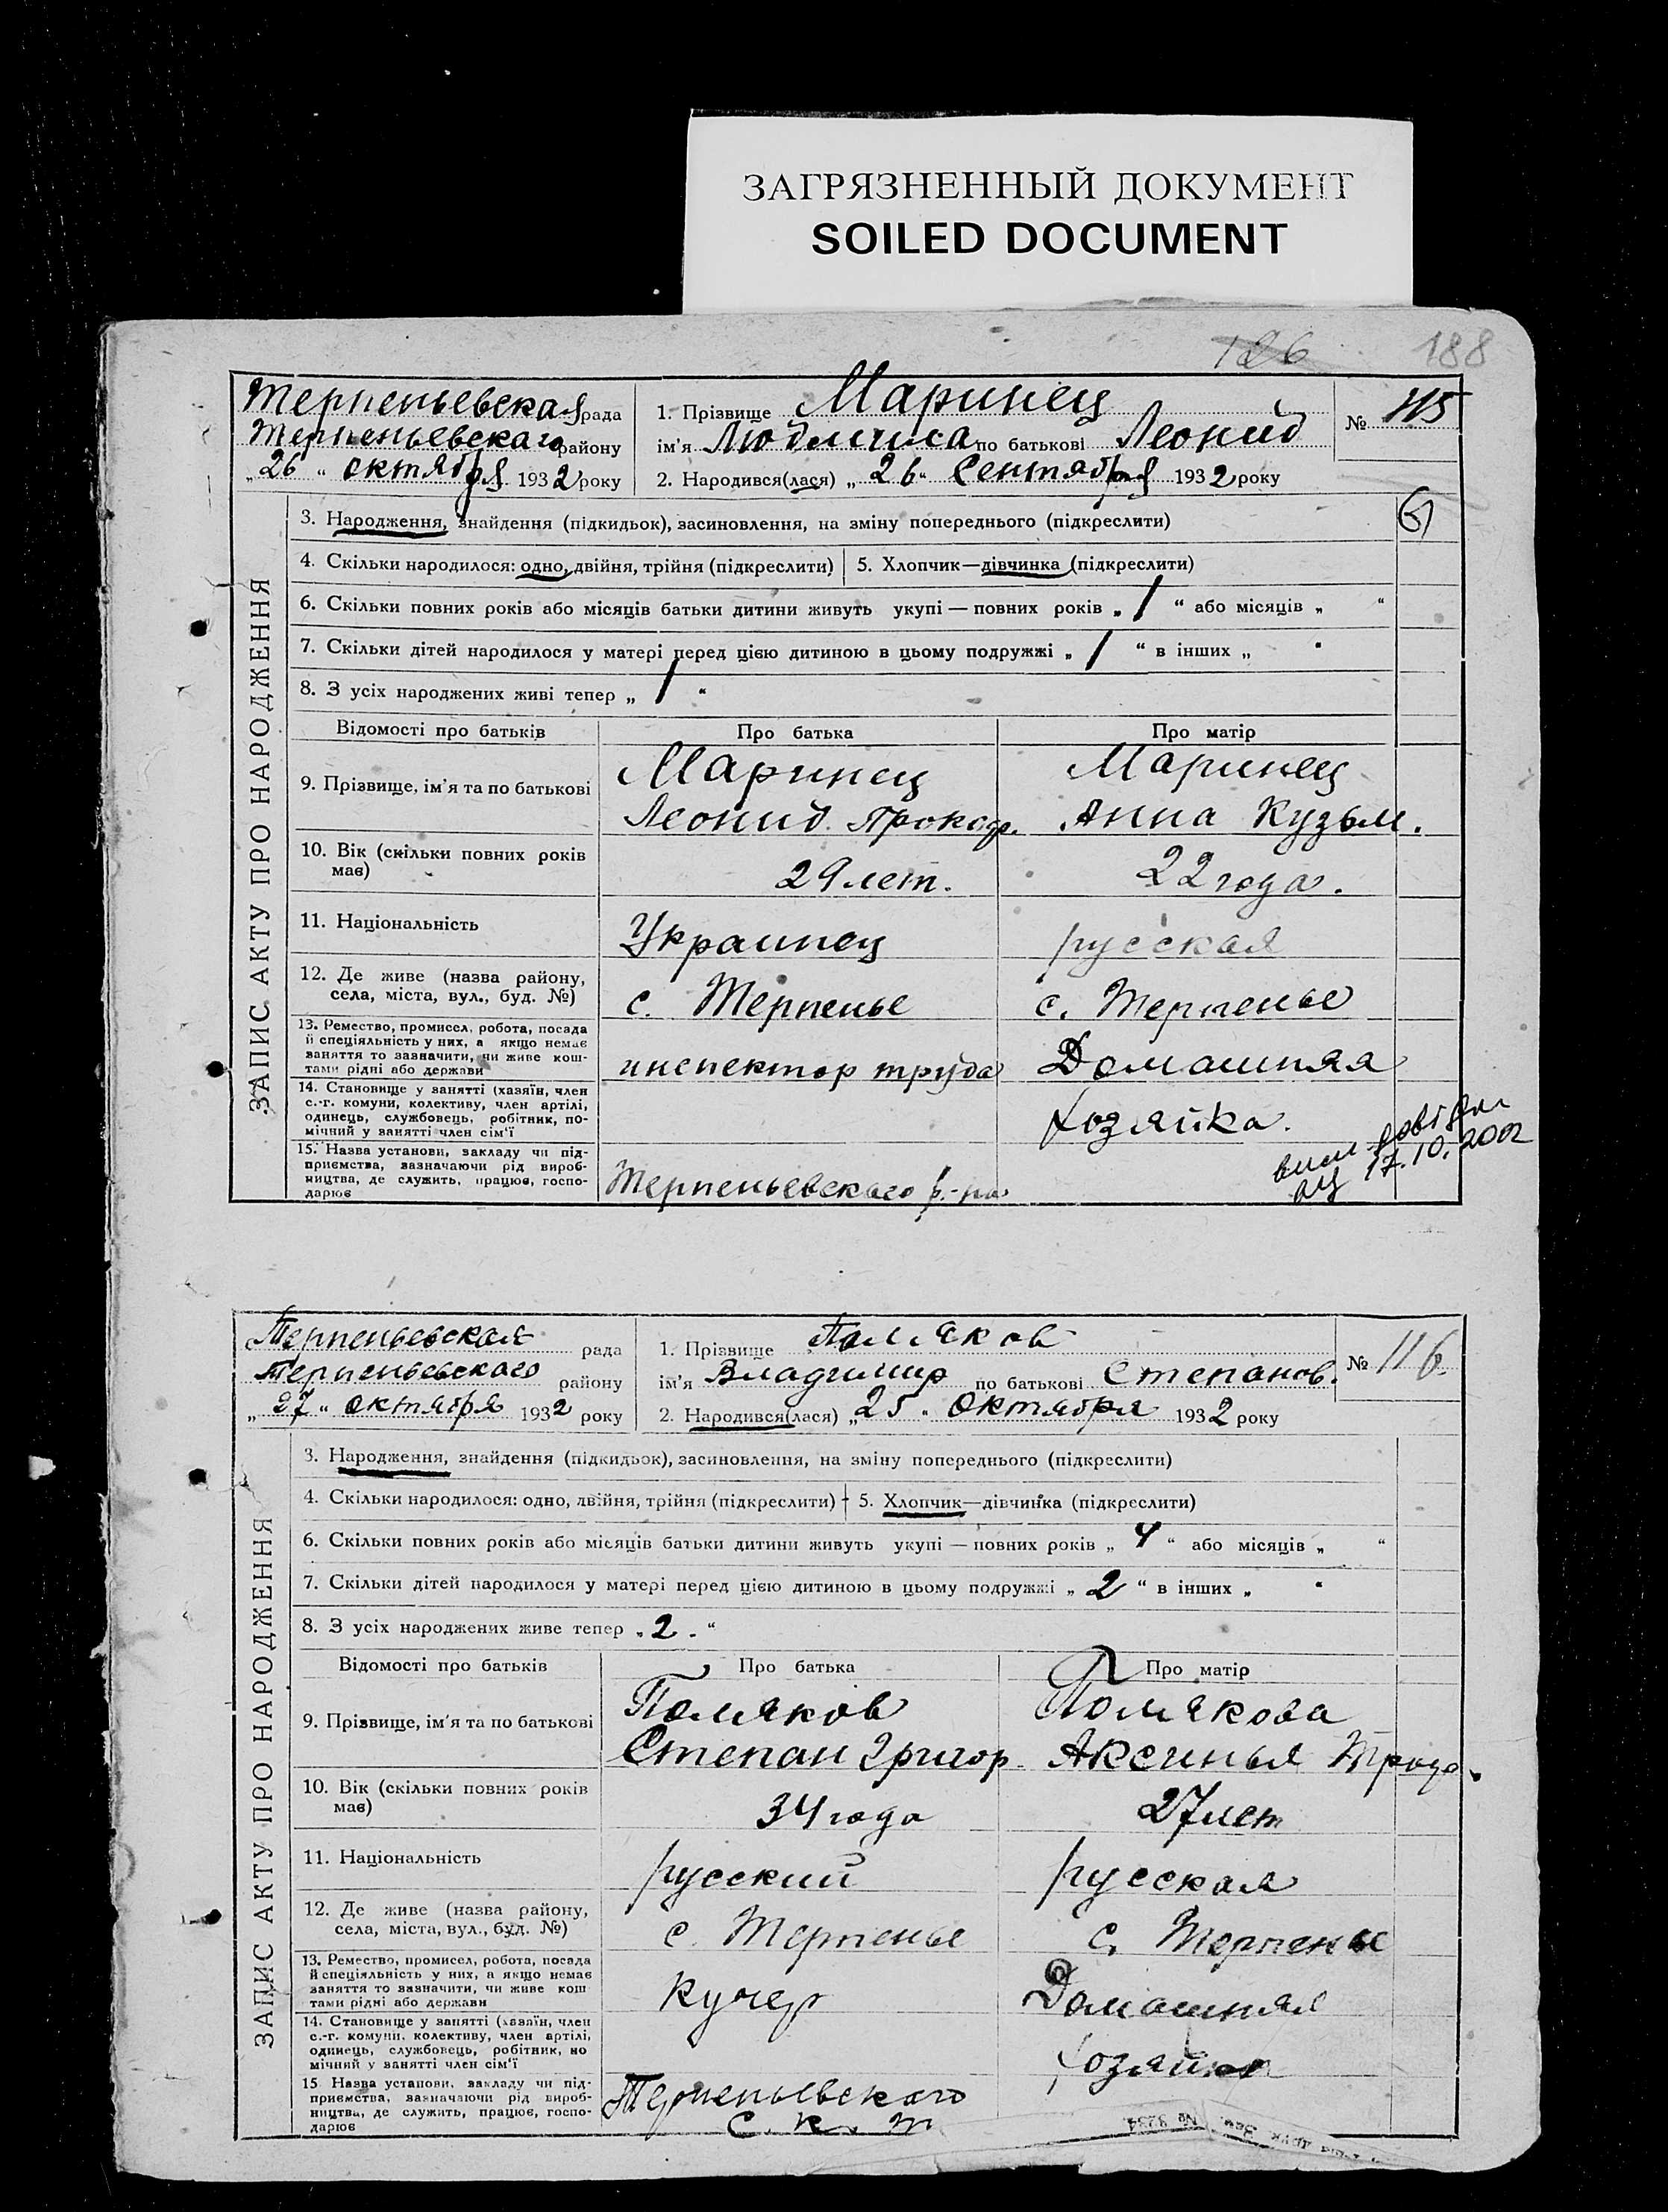 ЗАГРЯЗНЕННЫЙ ДОКУМЕНТ
SOILED DOCUMENT
126 188
Терпеньевская рада
Терпеньевскаго району
„26“ октября 1932 року
1. Прізвище Маринец
ім'я Людмила по батькові Леонид
2. Народився(лася) „26“ Сентября 1932 року
№ 115
ЗАПИС АКТУ ПРО НАРОДЖЕННЯ
3. Народження, знайдення (підкидьок), засиновлення, на зміну попереднього (підкреслити)
4. Скільки народилося: одно, двійня, трійня (підкреслити) 5. Хлопчик—дівчинка (підкреслити)
6. Скільки повних років або місяців батьки дитини живуть укупі — повних років „ 1 “ або місяців „ “
7. Скільки дітей народилося у матері перед цією дитиною в цьому подружжі „ 1 “ в інших „ “
8. З усіх народжених живі тепер „ 1 “
Відомості про батьків Про батька Про матір
9. Прізвище, ім'я та по батькові Маринец Маринец
Леонид Прокоф. Анна Кузьм.
10. Вік (скільки повних років
має) 29 лет. 22 года.
11. Національність Украинец русская
12. Де живе (назва району,
села, міста, вул., буд. №) с. Терпенье с. Терпенье
13. Ремество, промисел, робота, посада
й спеціяльність у них, а якщо немає
заняття то зазначити, чи живе кош-
тами рідні або держави инспектор труда Домашняя
14. Становище у занятті (хазяїн, член
с.-г. комуни, колективу, член артілі,
одинець, службовець, робітник, по-
мічний у занятті член сім'ї Хозяйка.
15. Назва установи, закладу чи під-
приємства, зазначаючи рід вироб-
ництва, де служить, працює, госпо-
дарює Терпеньевскаго р-на
17.10.2002
Терпеньевская рада
Терпеньевскаго району
„27“ октября 1932 року
1. Прізвище Поляков
ім'я Владимир по батькові Степанов.
2. Народився(лася) „25“ Октября 1932 року
№ 116.
ЗАПИС АКТУ ПРО НАРОДЖЕННЯ
3. Народження, знайдення (підкидьок), засиновлення, на зміну попереднього (підкреслити)
4. Скільки народилося: одно, двійня, трійня (підкреслити) 5. Хлопчик—дівчинка (підкреслити)
6. Скільки повних років або місяців батьки дитини живуть укупі — повних років „ 4 “ або місяців „ “
7. Скільки дітей народилося у матері перед цією дитиною в цьому подружжі „ 2 “ в інших „ “
8. З усіх народжених живе тепер „ 2. “
Відомості про батьків Про батька Про матір
9. Прізвище, ім'я та по батькові Поляков Полякова
Степан Григор. Аксинья
10. Вік (скільки повних років
має) 34 года 27 лет
11. Національність русский русская
12. Де живе (назва району,
села, міста, вул., буд. №) с. Терпенье с. Терпенье
13. Ремество, промисел, робота, посада
й спеціяльність у них, а якщо немає
заняття то зазначити, чи живе кош
тами рідні або держави Кучер Домашняя
14. Становище у занятті (хазяїн, член
с.-г. комуни, колективу, член артілі,
одинець, службовець, робітник, по
мічний у занятті член сім'ї Хозяйка
15 Назва установи, закладу чи під-
приємства, зазначаючи рід вироб-
ництва, де служить, працює, госпо-
дарює Терпеньевскаго
С. К. Т